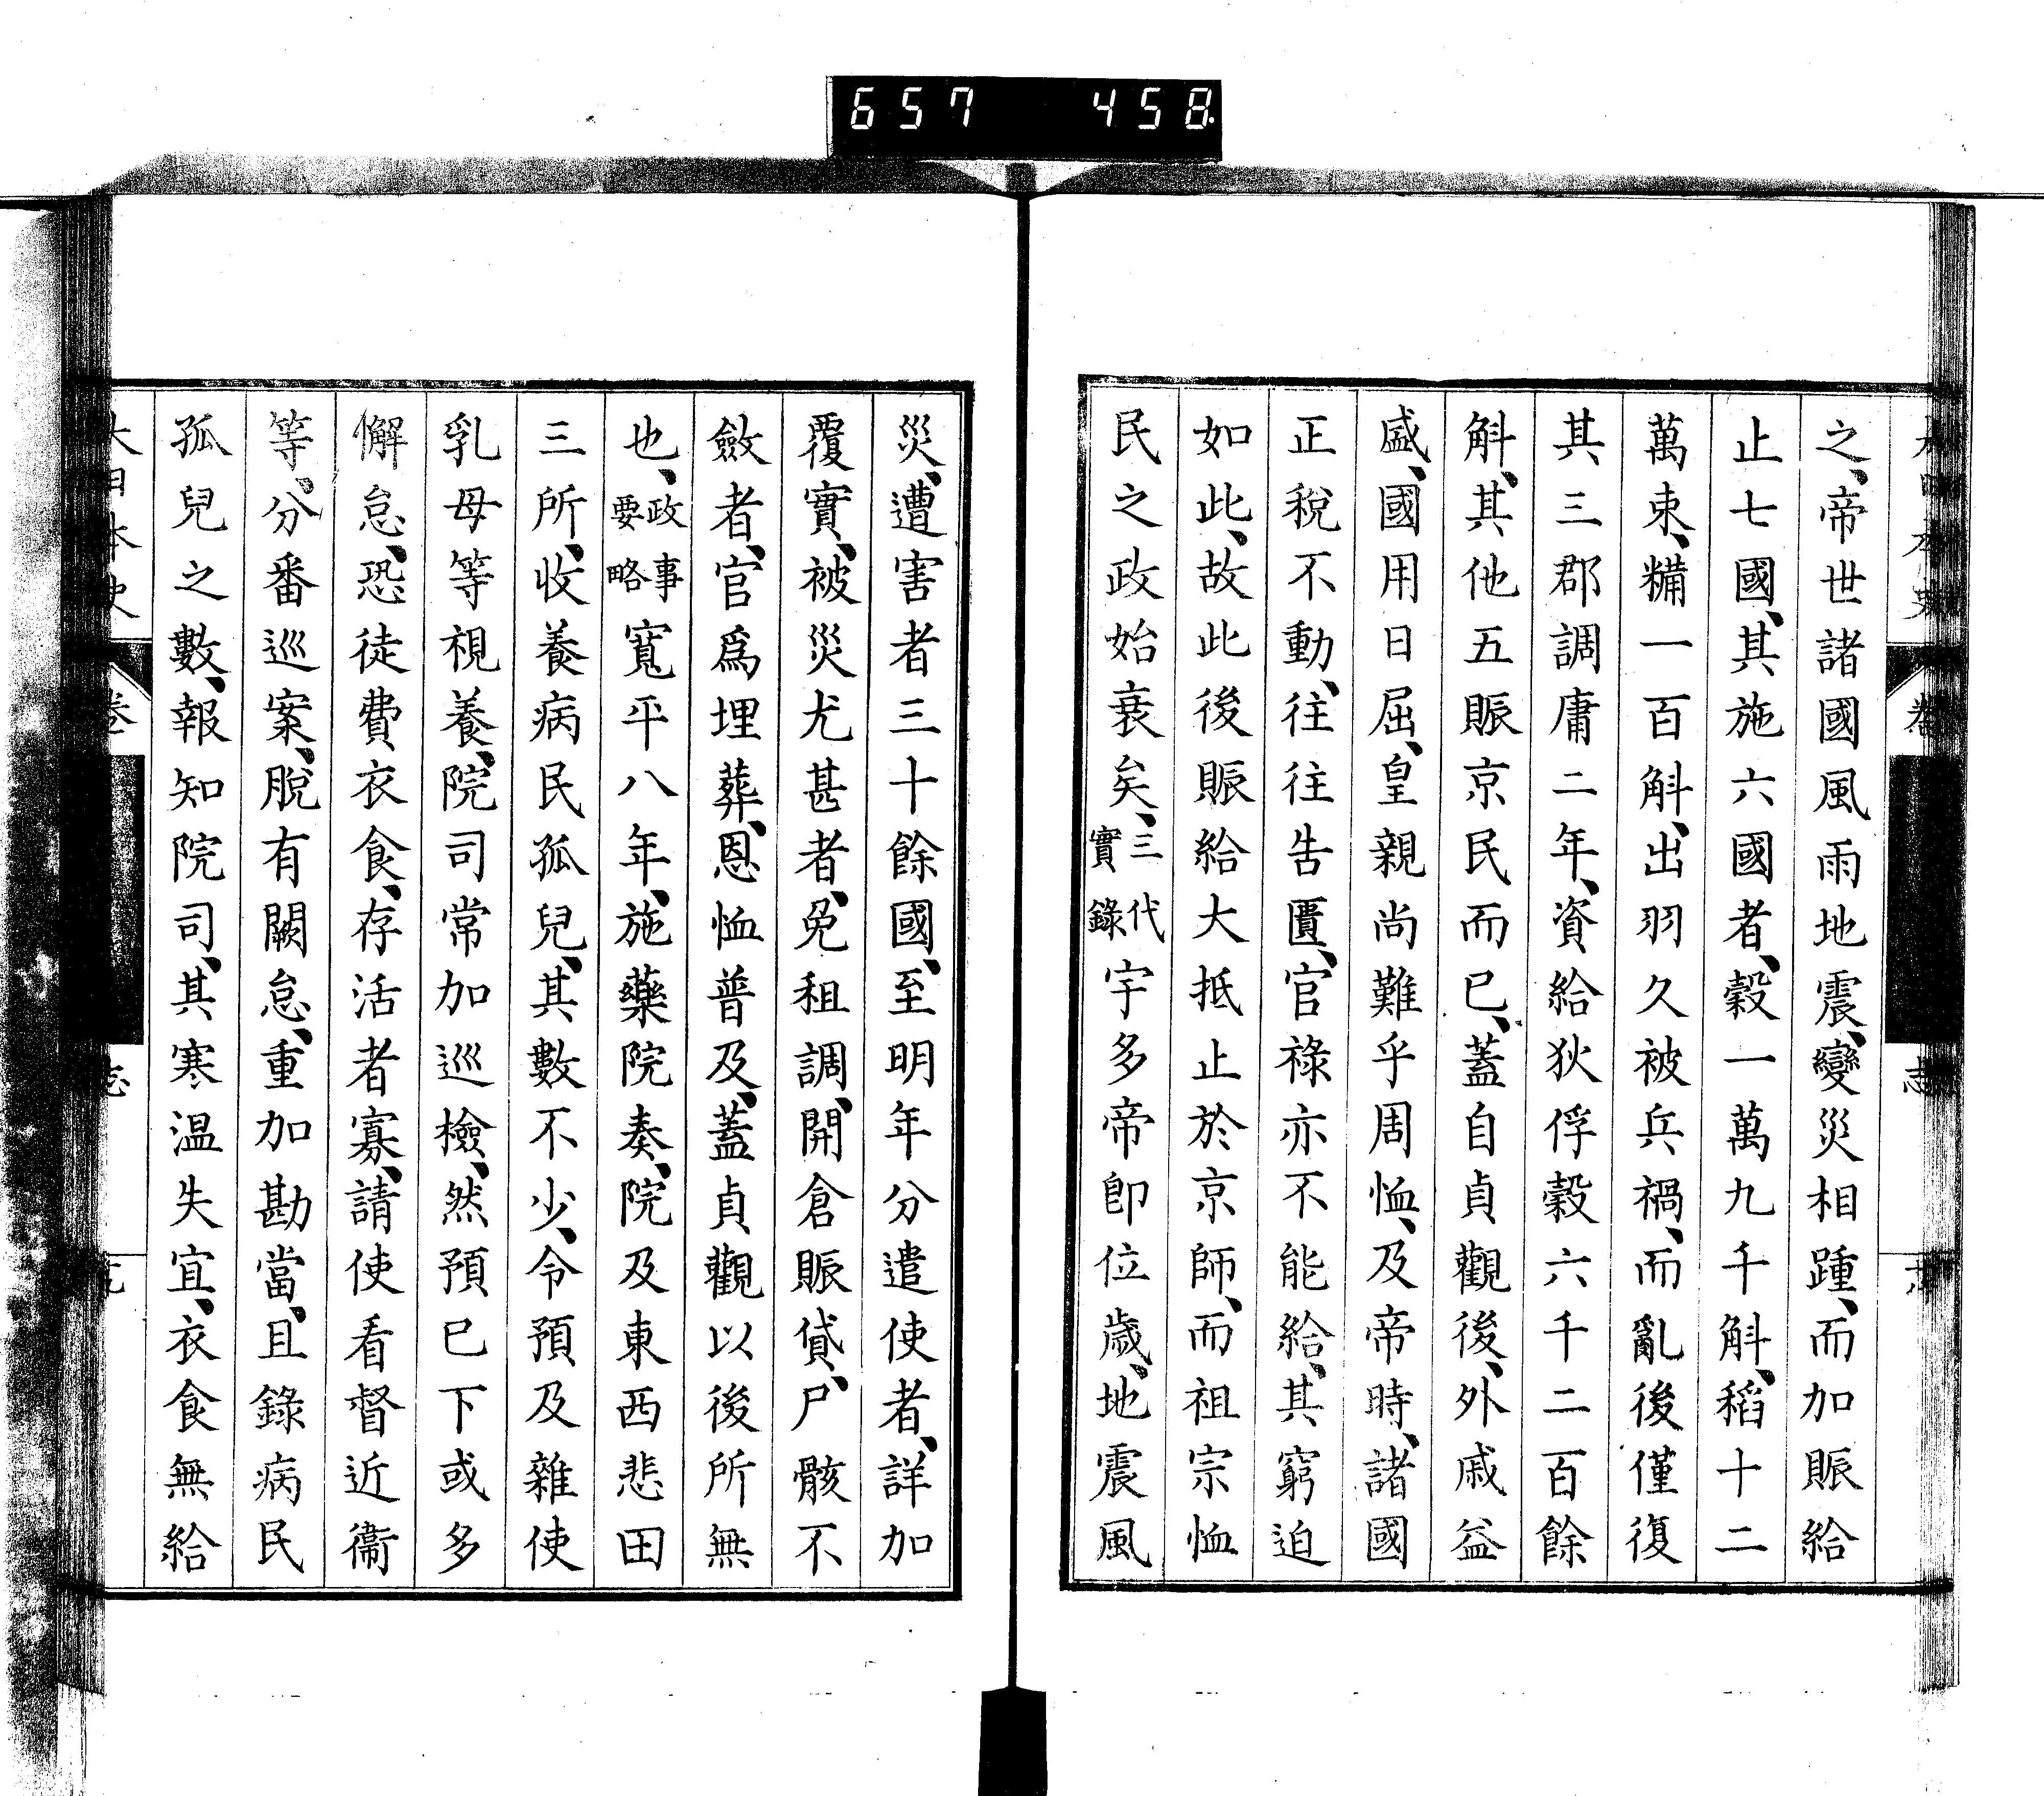 657 458
之、帝世諸國風雨地震、變災相踵、而加賑給
止七國、其施六國者、穀一萬九千斛、稻十二
萬束、糒一百斛、出羽久被兵禍、而亂後僅復
其三郡調庸二年、資給狄俘穀六千二百餘
斛、其他五賑京民而已、蓋自貞觀後、外戚益
盛、國用日屈、皇親尚難乎周恤、及帝時、諸國
正稅不動、往往告匱、官祿亦不能給、其窮迫
如此、故此後賑給大抵止於京師、而祖宗恤
民之政始衰矣、三代實錄宇多帝卽位歲、地震風
災、遭害者三十餘國、至明年分遣使者、詳加
覆實、被災尤甚者、免租調、開倉賑貸、尸骸不
斂者、官爲埋葬、恩恤普及、蓋貞觀以後所無
也、政事要略寬平八年、施藥院奏、院及東西悲田
三所、收養病民孤兒、其數不少、令預及雜使
乳母等視養、院司常加巡檢、然預已下或多
懈怠、恐徒費衣食、存活者寡、請使看督近衞
等、分番巡案、脫有闕怠、重加勘當、且錄病民
孤兒之數、報知院司、其寒温失宜、衣食無給